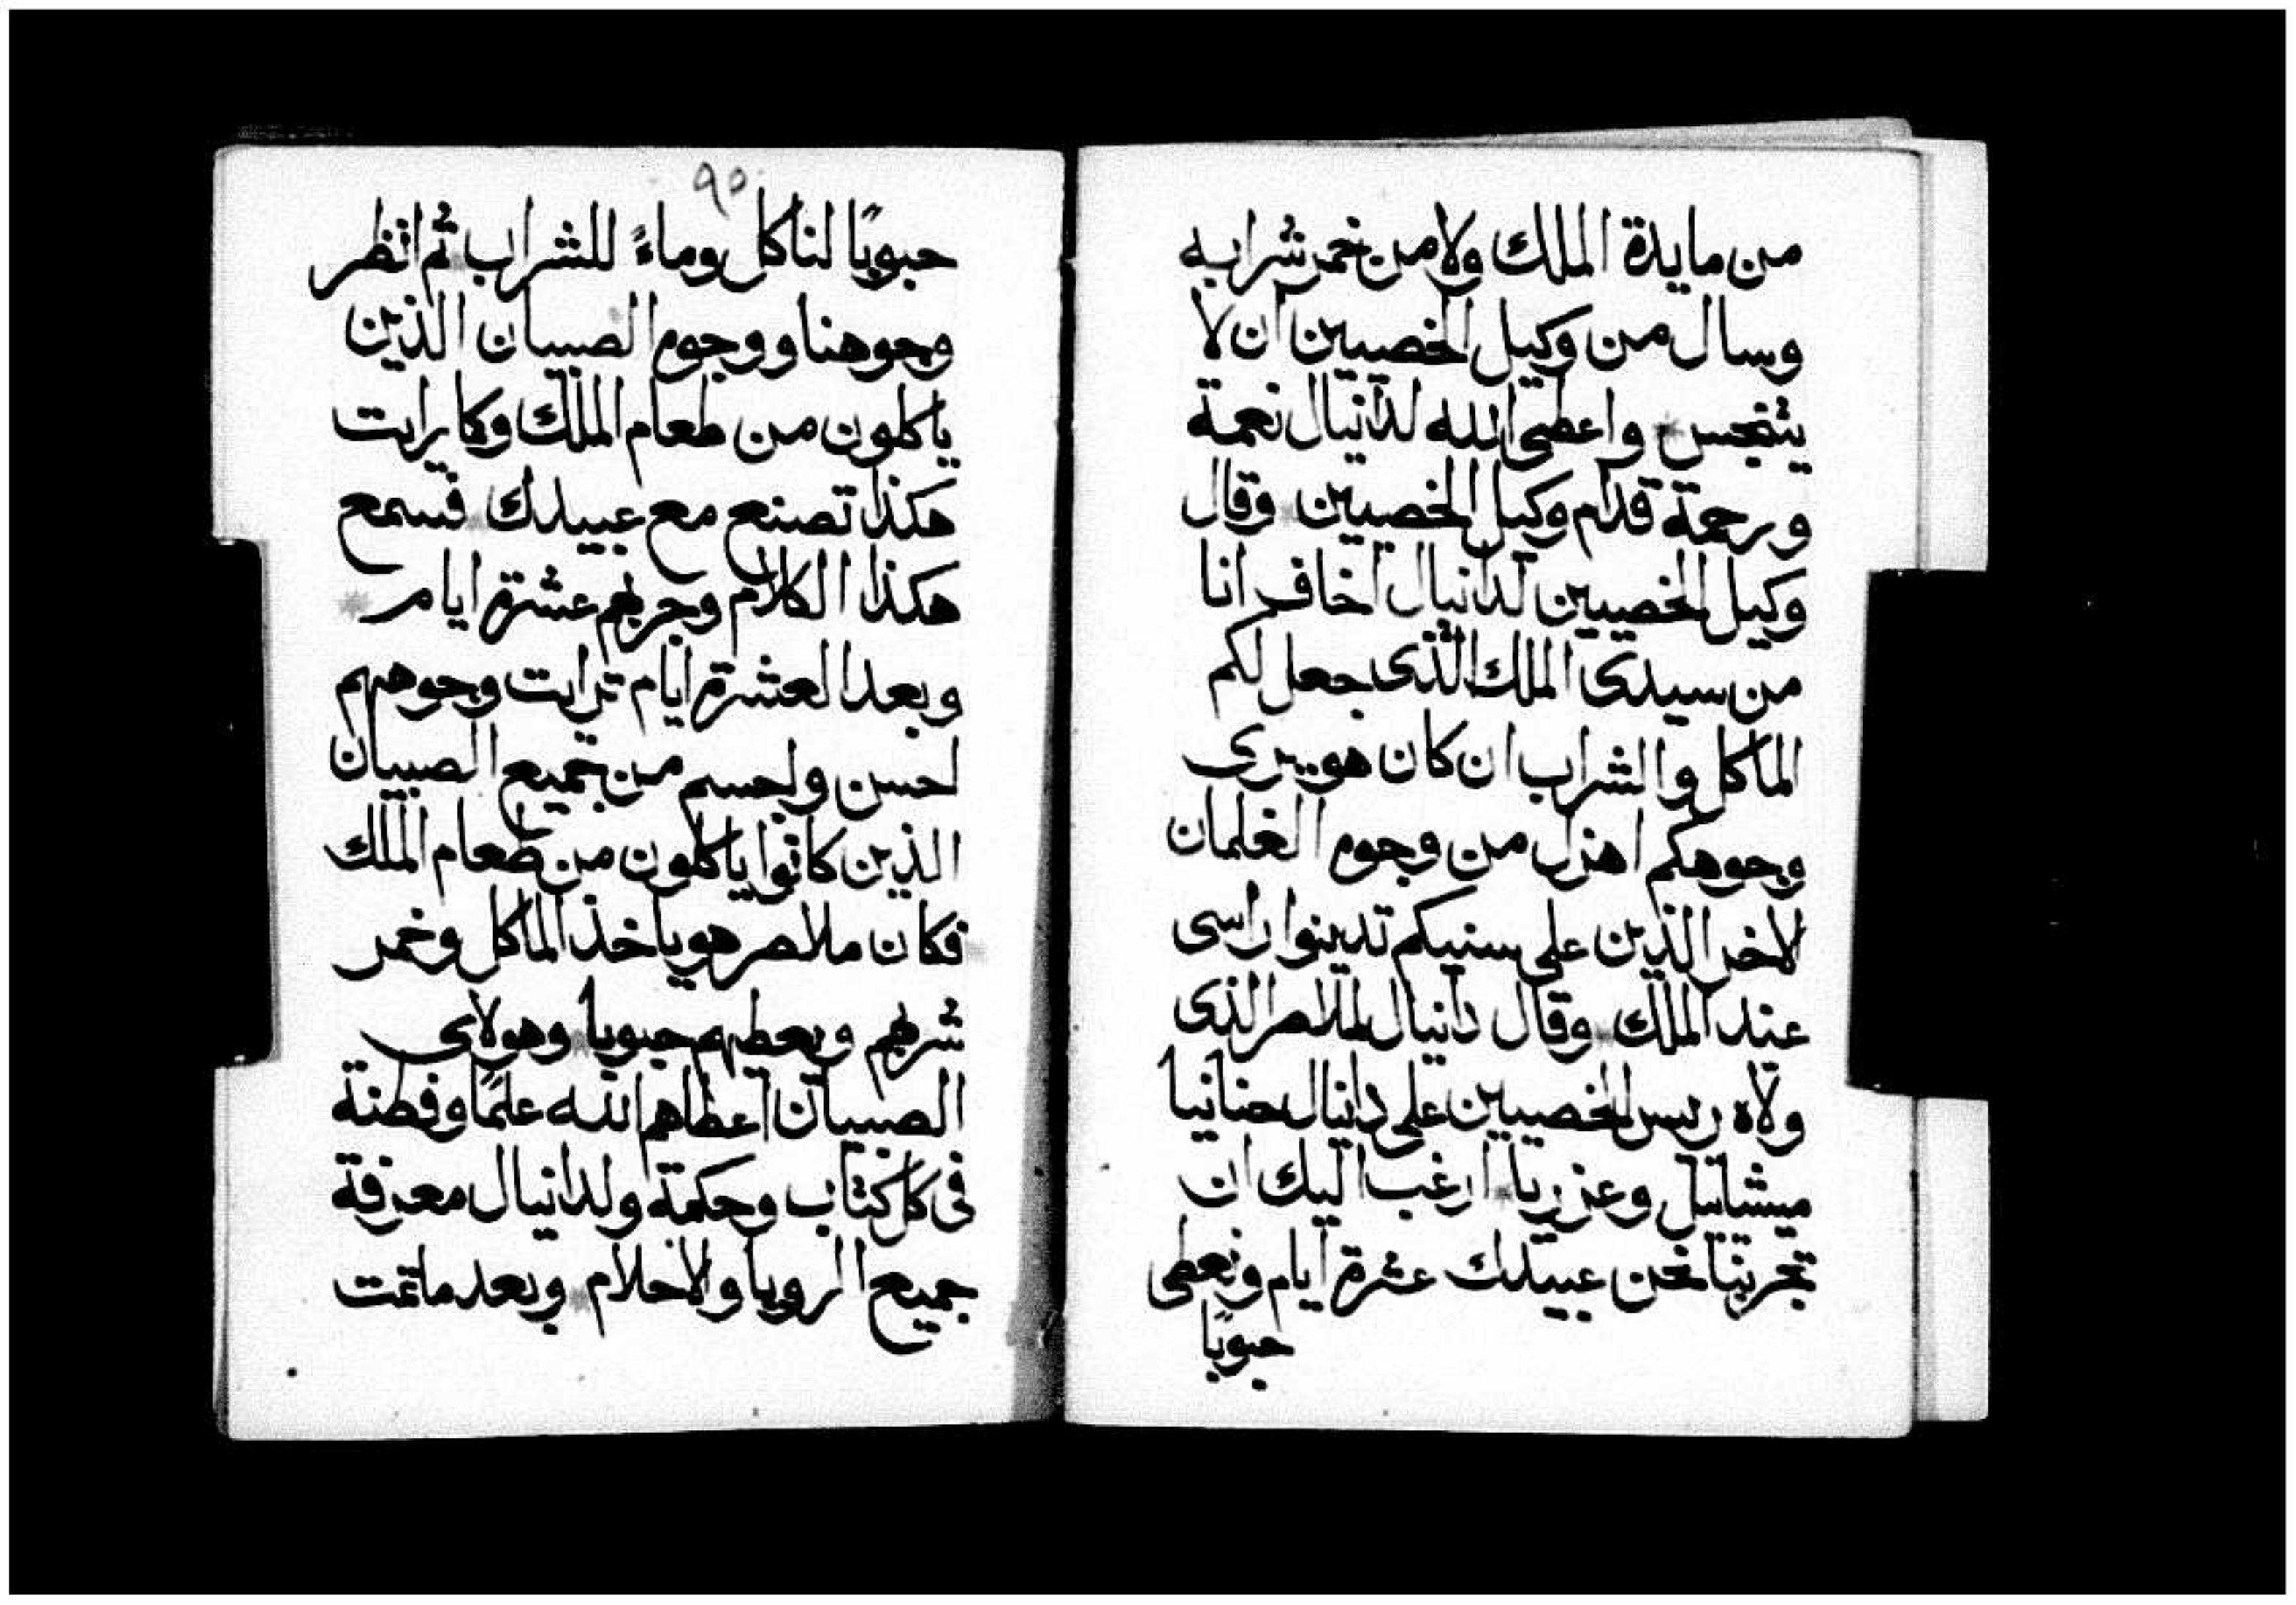 من مايدة الملك ولا من خمر شرابه
وسال من وكيل الخصيين ان لا
يتنجس واعطى الله لدانيال نعمة
ورحمة قدام وكيل الخصيين وقال
وكيل الخصيين لدانيال اخاف انا
من سيدى الملك الذى جعل لكم
الماكل والشراب ان كان هو يرى
وجوهكم اهزل من وجوه الغلمان
الاخر الذين على سنيكم تدينوا راسى
عند الملك وقال دانيال لملاصر الذى
ولاه ريس الخصيين على دانيال حنانيا
ميشائيل وعزريا ارغب اليك ان
تجربنا نحن عبيدك عشرة ايام ونعطى
حبوبًا
٩٥
حبوبًا لناكل وماءً للشراب ثم انظر
وجوهنا ووجوه الصبيان الذين
ياكلون من طعام الملك وكما رايت
هكذا تصنع مع عبيدك فسمع
هكذا الكلام وجربهم عشرة ايام
وبعد العشرة ايام ترايت وجوههم
احسن واجسم من جميع الصبيان
الذين كانوا ياكلون من طعام الملك
فكان ملاصر هو ياخذ الماكل وخمر
شربهم ويعطيهم حبوبا وهولاى
الصبيان اعطاهم الله علمًا وفطنة
فى كل كتاب وحكمة ولدانيال معرفة
جميع الرويا والاحلام وبعد ما تمت